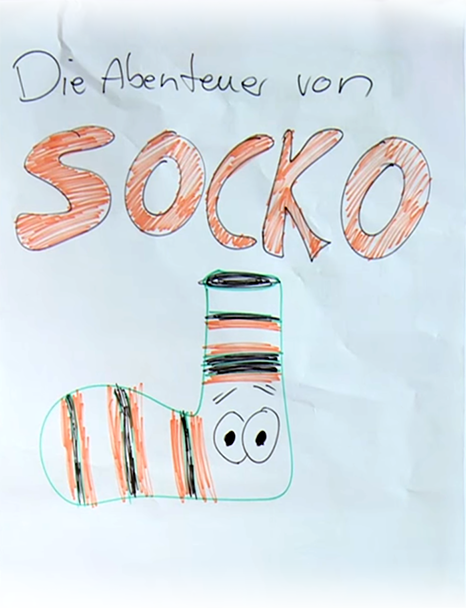 Die Abenteuer von
SOCKO